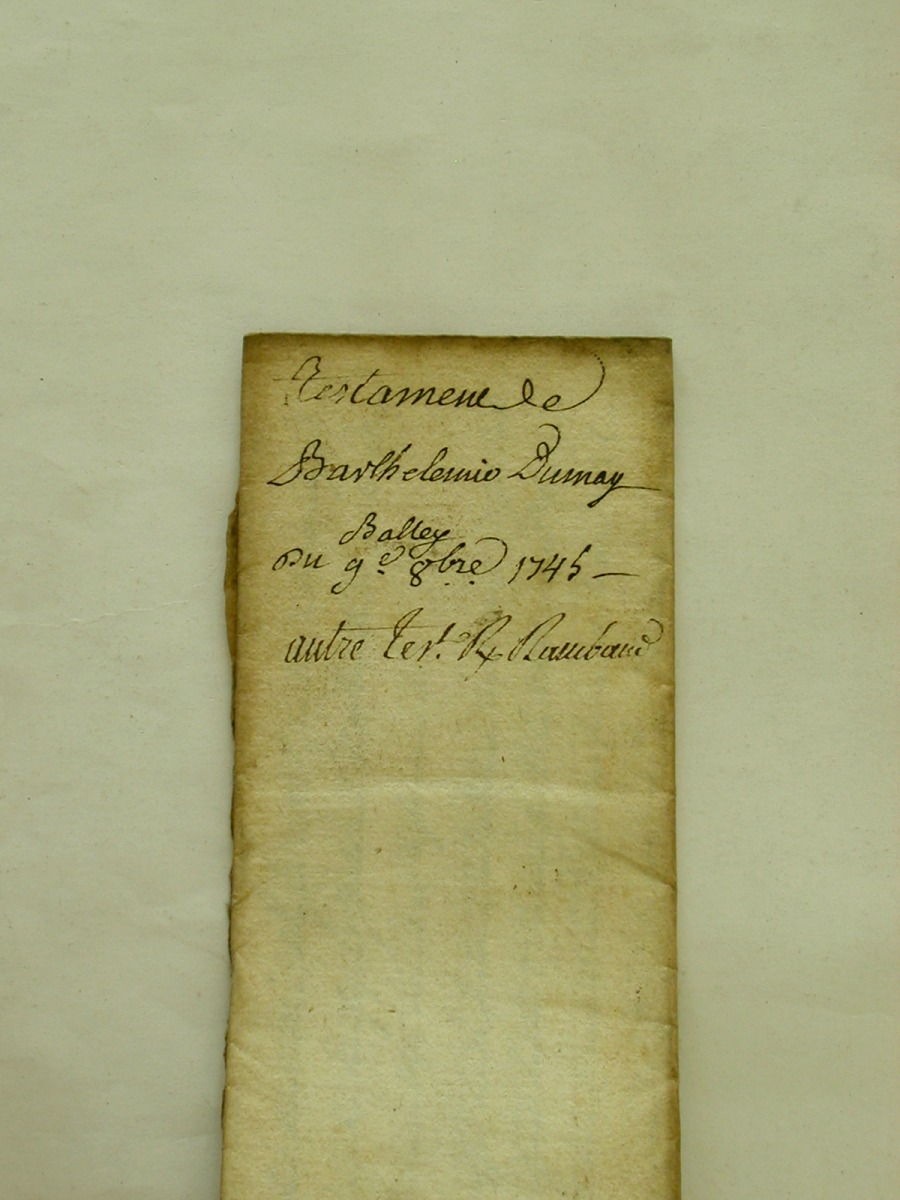 Testament de
Barthelemie Dumay
Balley
Du 9e 8bre 1745
autre test. Rx Raimbaud